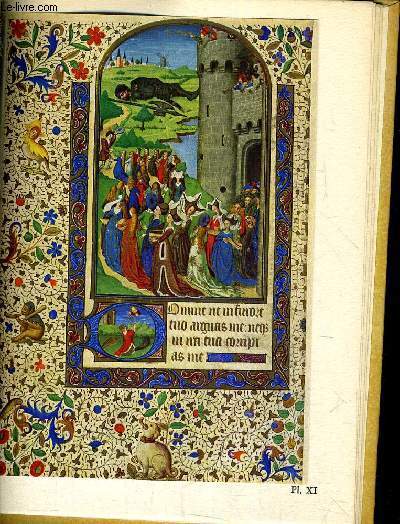 Le-livre.com
Domine ne in furore
tuo arguas me neqȝ
in ira tua corripi
as me
Pl. XI